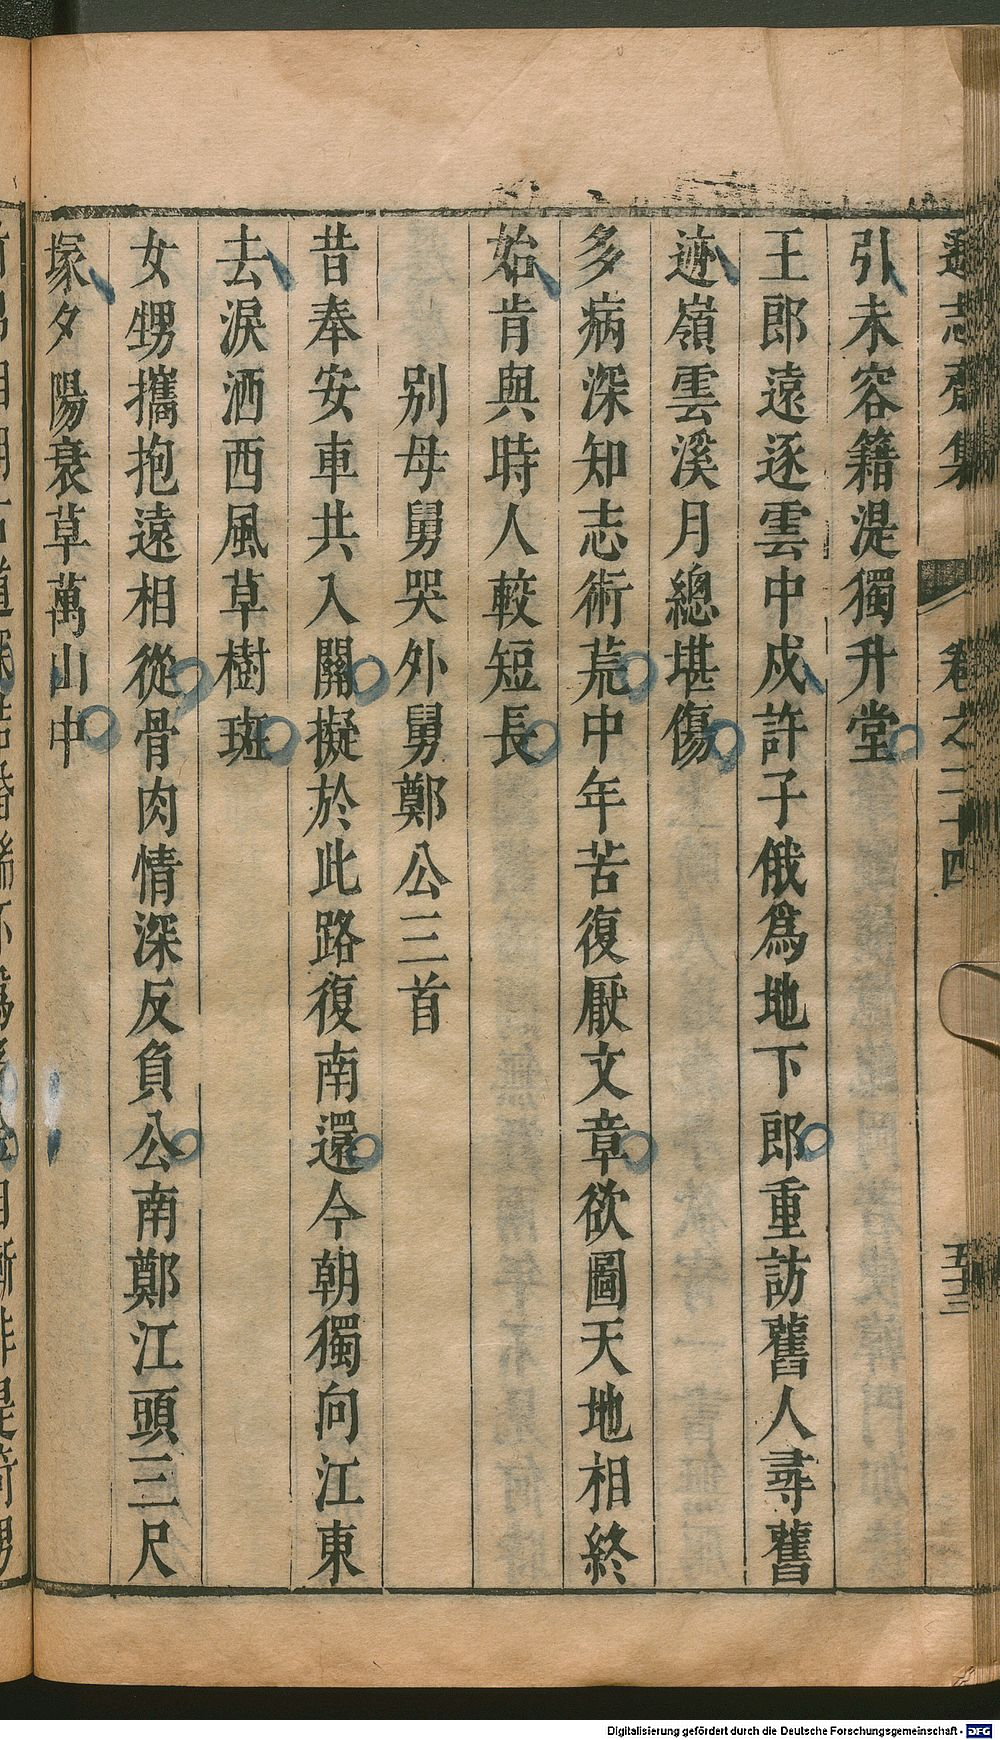 遜志齋集 卷之二十四 五十三
引未容籍湜獨升堂
王郎遠逐雲中戍許子俄爲地下郎重訪舊人尋舊
迹嶺雲溪月總堪傷
多病深知志術荒中年苦復厭文章欲圖天地相終
始肯與時人較短長
別母舅哭外舅鄭公三首
昔奉安車共入關擬於此路復南還今朝獨向江東
去淚洒西風草樹斑
女甥攜抱遠相從骨肉情深反負公南鄭江頭三尺
塚夕陽衰草萬山中
Digitalisierung gefördert durch die Deutsche Forschungsgemeinschaft - DFG